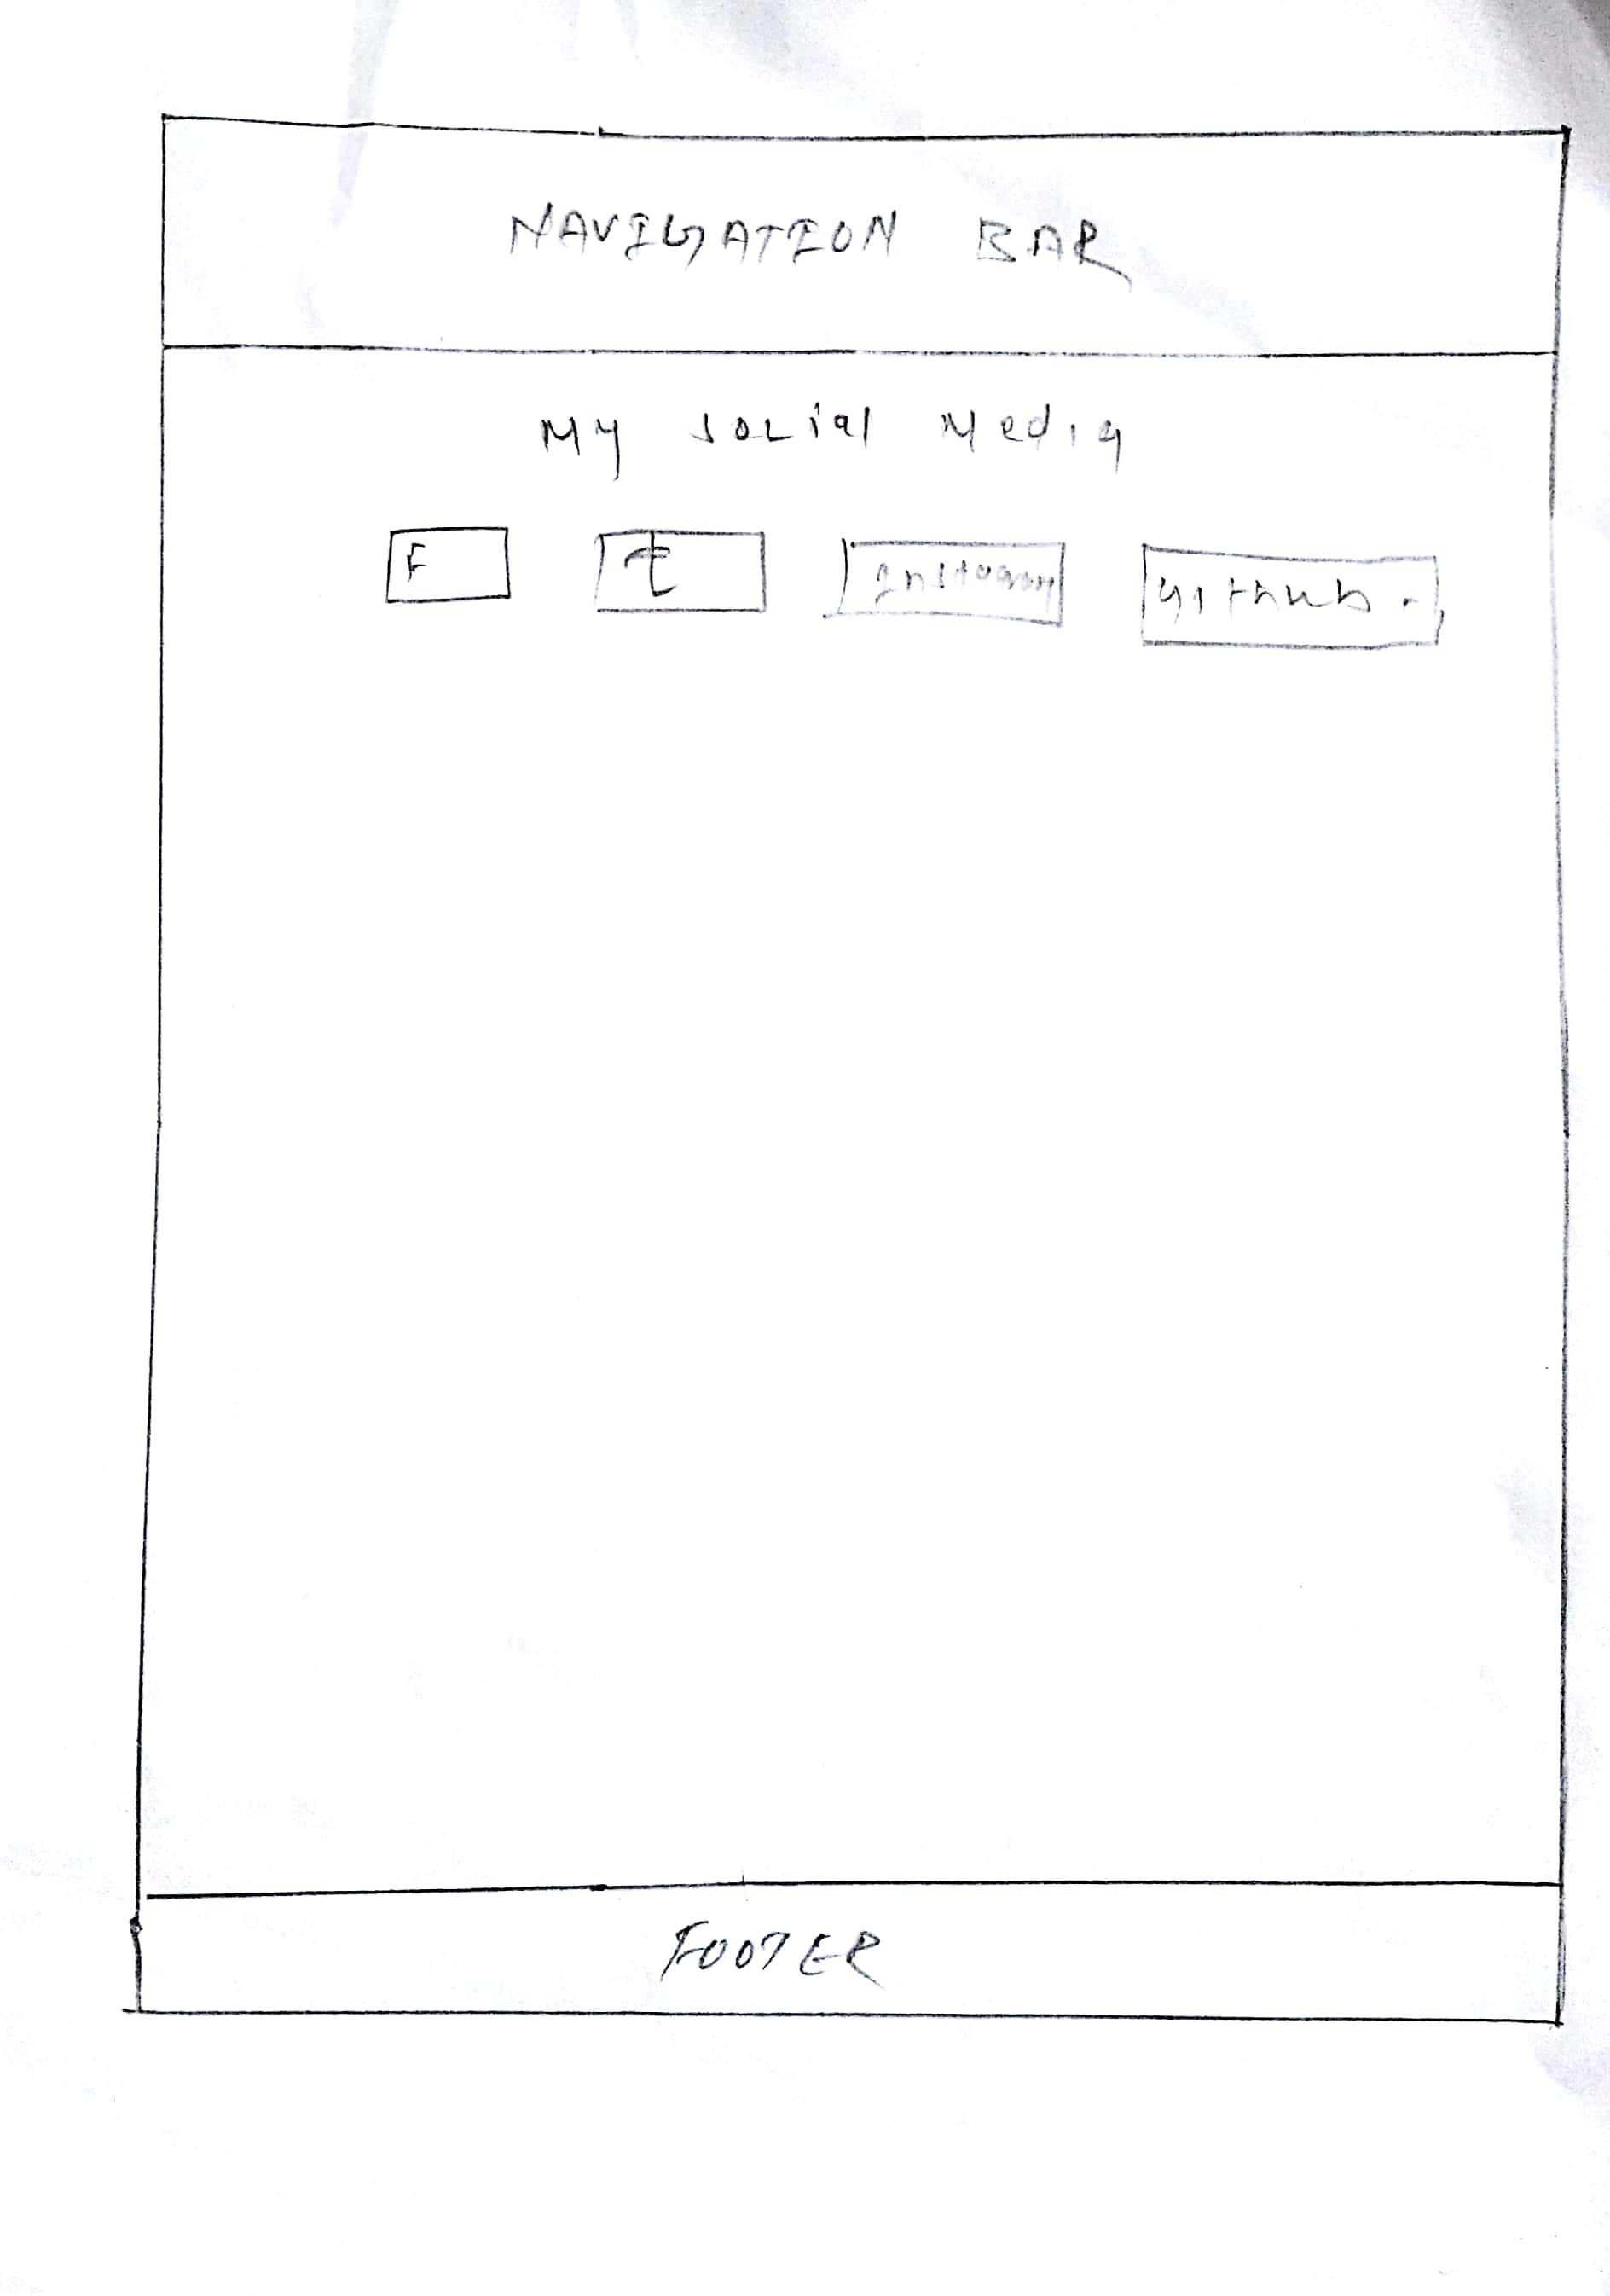 NAVIGATION BAR
My social Media
F t Instagram github.
FOOTER